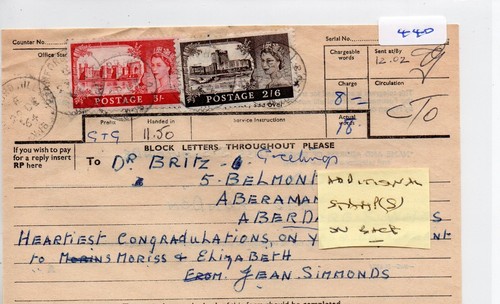 440
Counter No.
Serial No.
Office Stamp
Chargeable words
Sent at/By
12.02
Charge
Circulation
8/=
CTO
POSTAGE 5/-
POSTAGE 2/6
Prefix
Handed in
Service Instructions
Actual
GTG
11.50
18
If you wish to pay for a reply insert RP here
BLOCK LETTERS THROUGHOUT PLEASE
To DR BRITZ Greetings
5. BELMONT
ABERAMAN
ABERDA S
ADDITIONAL
STAMP(S)
ON BACK
HEARTIEST CONGRADULATIONS, ON Y ENT
to MORISS & ELIZABETH
FROM. JEAN SIMMONDS